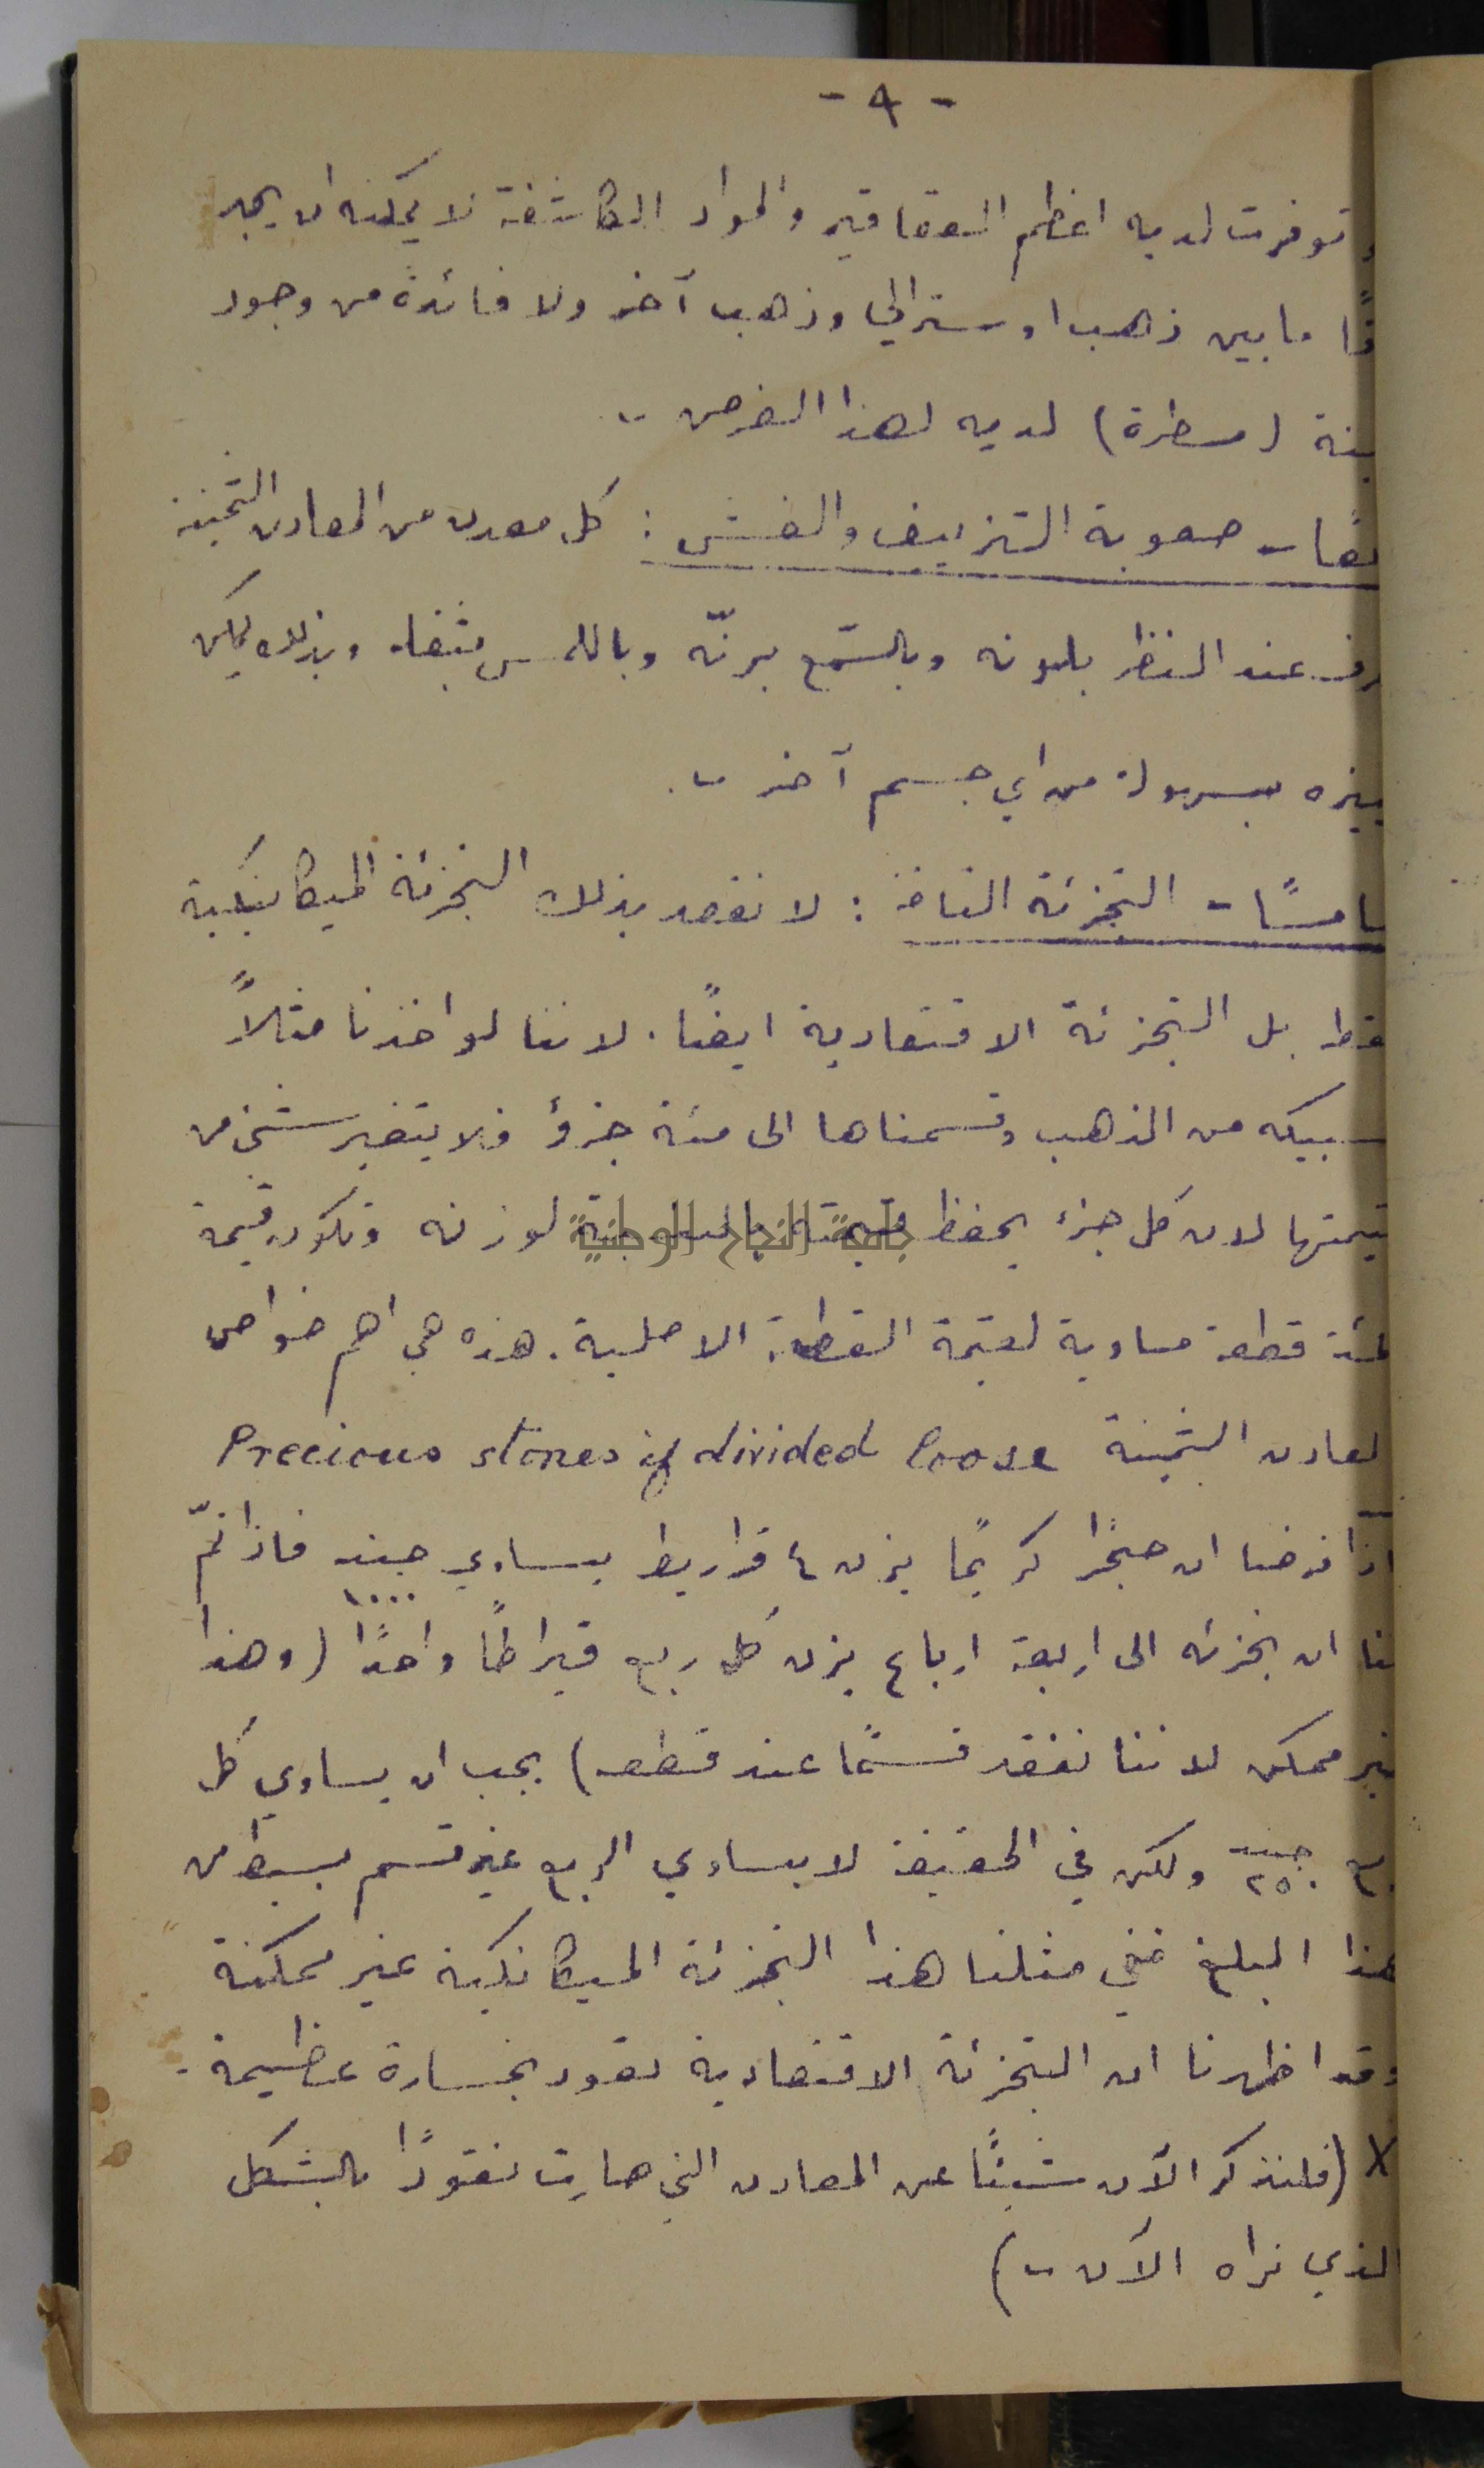 - ٩ -
توفرت لديه اعظم العقاقير والمواد الكاشفة لا يمكنه ان يجد
ما بين ذهب اوسترالي وذهب آخر ولا فائدة من وجود
(مسطرة) لديه لهذا الغرض -
صعوبة التزييف والغش : كل معدن من المعادن الثمينة
عند النظر بلونه وبالسّمع برنّه وباللمس بثقله وبذلك يمكن
بسهولة من اي جسم آخر -
التجزئة التامة : لا نقصد بذلك التجزئة الميكانيكية
بل التجزئة الاقتصادية ايضًا . لاننا لو اخذنا مثلاً
سبيكه من الذهب وقسمناها الى مئة جزؤ فلا يتغير شئ من
قيمتها لان كل جزء يحفظ قيمته بالنسبة لوزنه وتكون قيمة
جامعة النجاح الوطنية
قطعة مساوية لقيمة القطعة الاصلية . هذه هي اهم خواص
المعادن الثمينة Precious stones if divided loose
اذا فرضنا ان حجرًا كريمًا يزن ٤ قراريط يساوي جنيه ١٠٠٠ فاذا تمّ
لنا ان نجزئه الى اربعة ارباع يزن كل ربع قيراطًا واحدًا (وهذا
غير ممكن لاننا نفقد قسمًا عند قطعه) يجب ان يساوي كل
ربع جنيه ٢٥٠ ولكن في الحقيقة لا يساوي الربع غير قسم بسيط من
هذا المبلغ ففي مثلنا هذا التجزئة الميكانيكية غير ممكنة
وقد اظهرنا ان التجزئة الاقتصادية تعود بخسارة عظيمة -
X (فلنذكر الآن شيئًا عن المعادن التي صارت نقودًا بالشكل
الذي نراه الآن -)